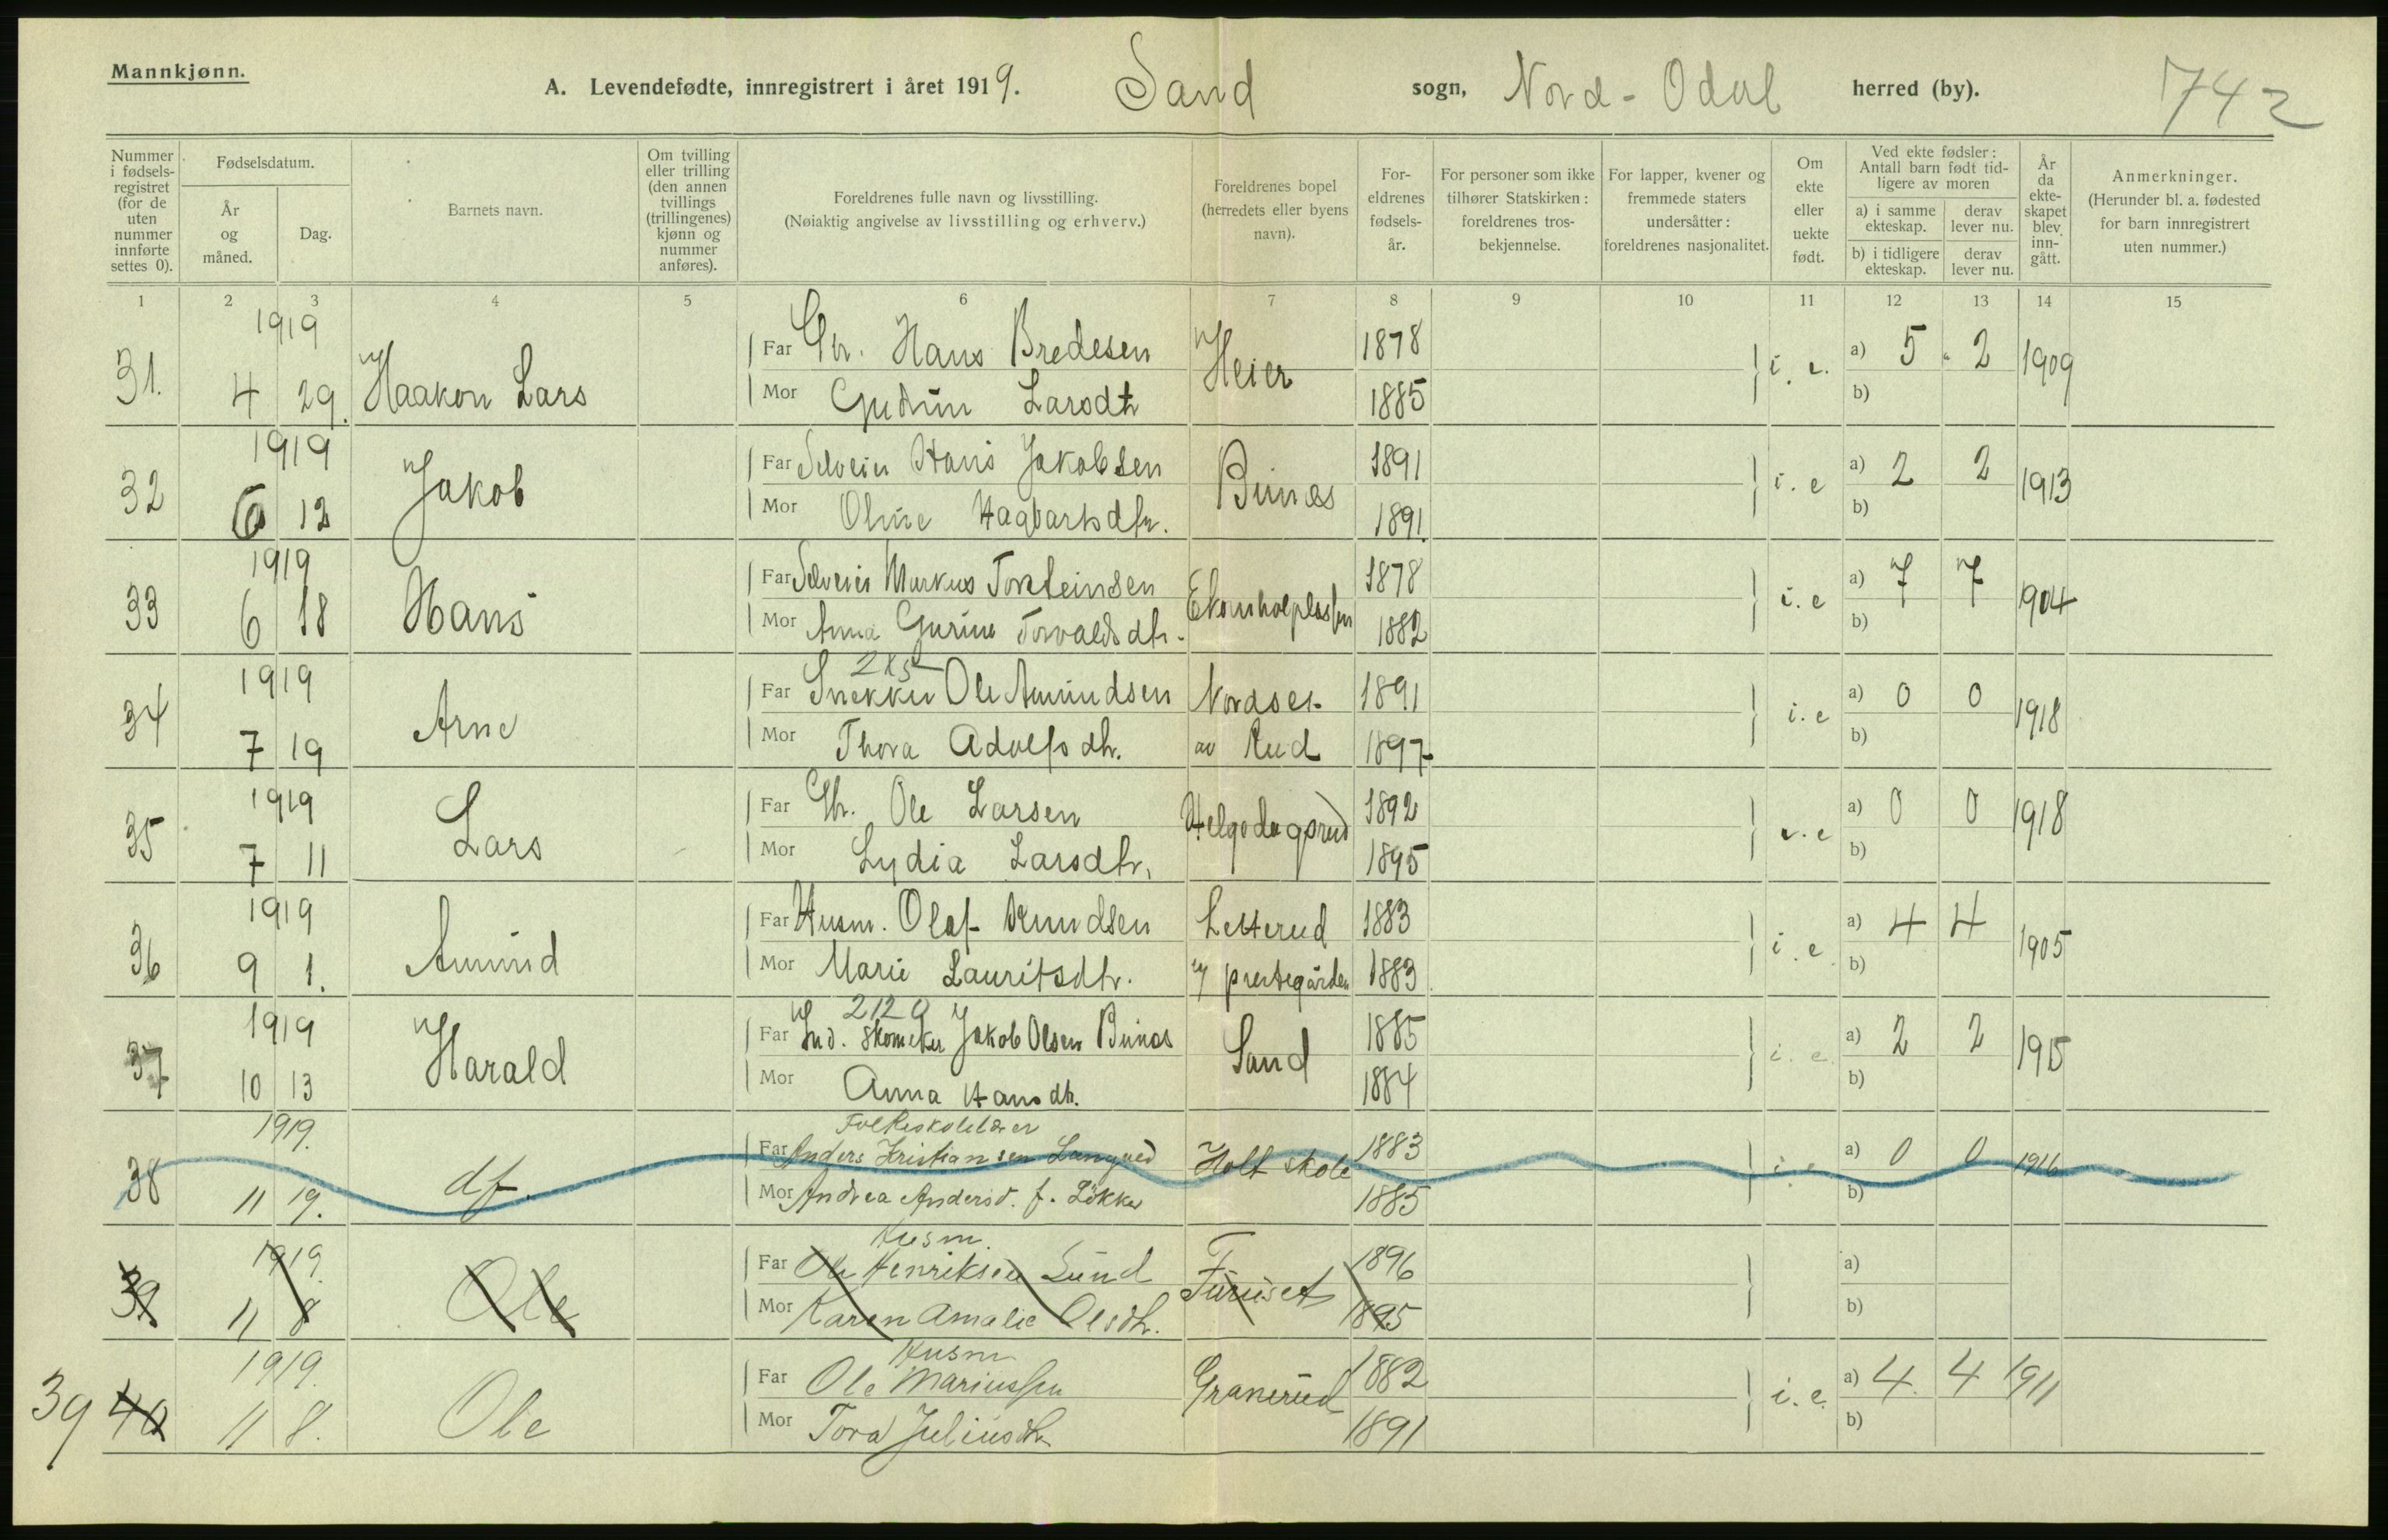 Mannkjønn.
A. Levendefødte, innregistrert i året 1919. Sand sogn, Nord-Odal herred (by). 742
Nummer i fødsels-registret (for de uten nummer innførte settes 0).
Fødselsdatum.
År og måned.
Dag.
Barnets navn.
Om tvilling eller trilling (den annen tvillings (trillingenes) kjønn og nummer anføres).
Foreldrenes fulle navn og livsstilling.
(Nøiaktig angivelse av livsstilling og erhverv.)
Foreldrenes bopel (herredets eller byens navn).
For-eldrenes fødsels-år.
For personer som ikke tilhører Statskirken: foreldrenes tros-bekjennelse.
For lapper, kvener og fremmede staters undersåtter: foreldrenes nasjonalitet.
Om ekte eller uekte født.
Ved ekte fødsler: Antall barn født tid-ligere av moren
a) i samme ekteskap.
derav lever nu.
b) i tidligere ekteskap.
derav lever nu.
År da ekte-skapet blev inn-gått.
Anmerkninger.
(Herunder bl. a. fødested for barn innregistrert uten nummer.)
1 2 3 4 5 6 7 8 9 10 11 12 13 14 15
1919
31. 4 29. Haakon Lars Far Gbr. Hans Bredesen Heier 1878 i. e. a) 5 2 1909
Mor Gudrun Larsdtr 1885 b)
1919
32 6 12 Jakob Far Selveier Hans Jakobsen Bunes 1891 i. e a) 2 2 1913
Mor Oline Hagbartsdtr. 1891. b)
1919
33 6 18 Hans Far Selveier Markus Torsteinsen 1878 i. e a) 7 7 1904
Mor Anna Gurine Torvaldsdtr. 1882 b)
1919 2x5
34 7 19 Arne Far Snekker Ole Amundsen Nordset 1891 i. e a) 0 0 1918
Mor Thora Adolfsdtr. av Rud 1897 b)
1919
35 7 11 Lars Far Gbr. Ole Larsen Helgedagsrud 1892 i. e a) 0 0 1918
Mor Lydia Larsdtr. 1895 b)
1919
36 9 1. Amund Far Husm. Olaf Knudsen Letterud 1883 i. e. a) 4 4 1905
Mor Marie Lauritsdtr. u/ prestegården 1883 b)
1919 2120
37 10 13 Harald Far Ind. skomaker Jakob Olsen Bunes Sand 1885 i. e. a) 2 2 1915
Mor Anna Hansdtr. 1884 b)
1919. Folkeskolelærer
38 11 19. df. Far Anders Kristiansen Langved Holt skole 1883 i. e. a) 0 0 1916
Mor Andrea Andersd. f. Løkker 1885 b)
1919. Husm.
39 11 8 Ole Far Ole Henriksen Lund Furuset 1896 a)
Mor Karen Amalie Olsdtr. 1895 b)
1919. Husm
39 40 11 8. Ole Far Ole Mariussen Granerud 1882 i. e. a) 4. 4 1911
Mor Tora Juliusdtr 1891 b)